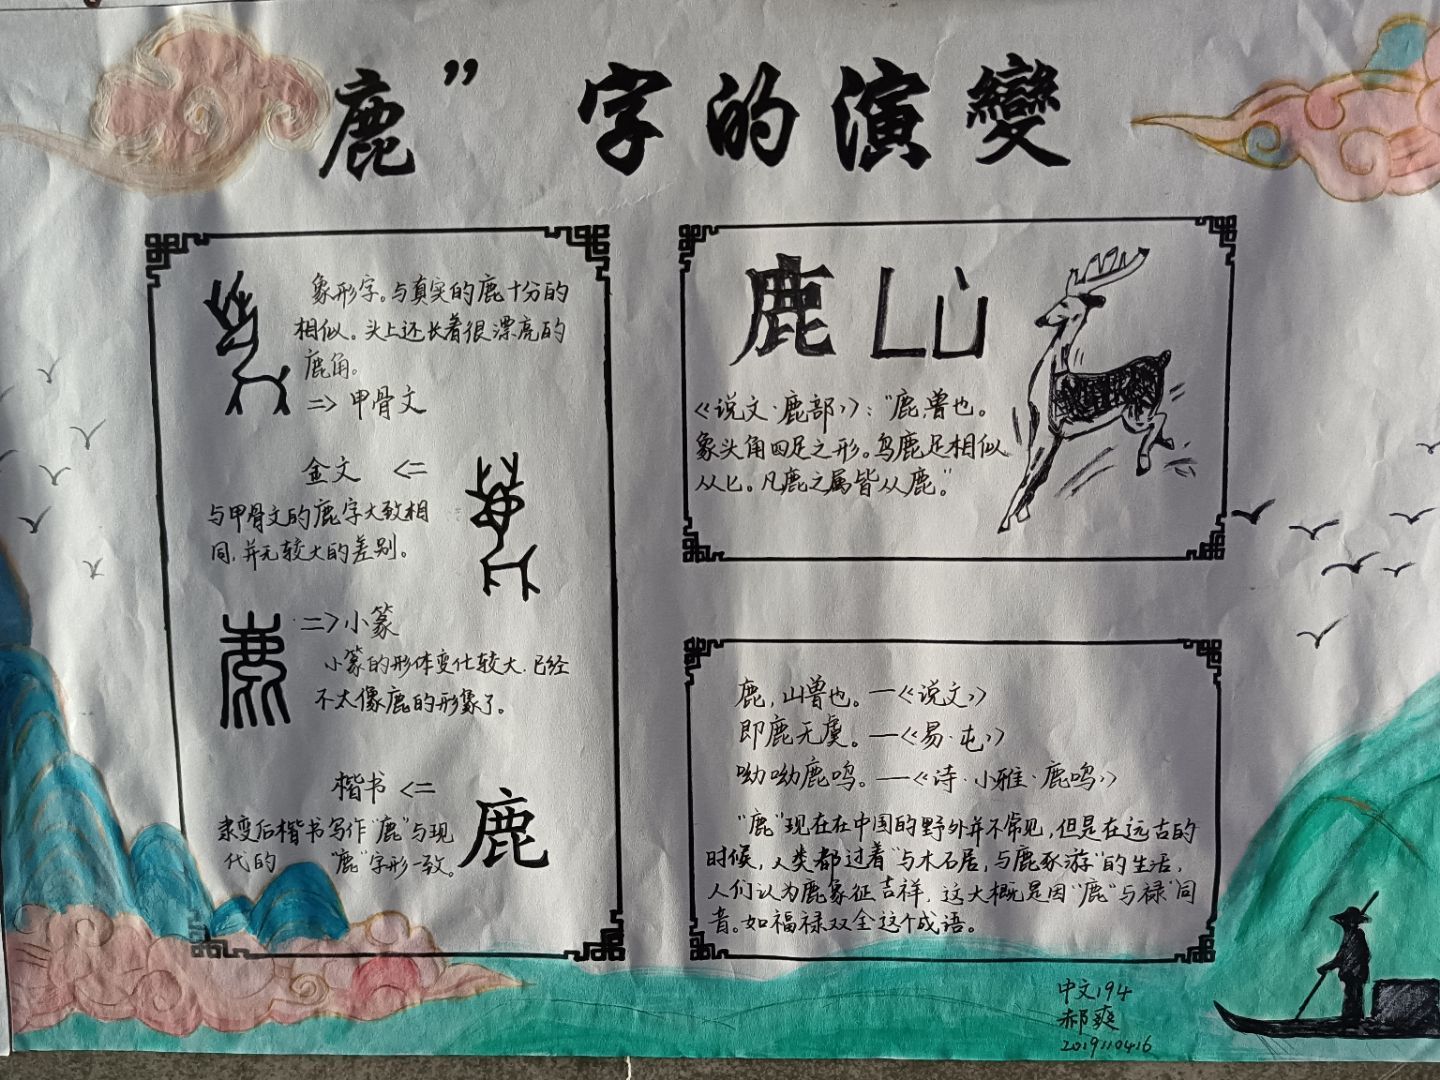 鹿” 字的演變
象形字。与真实的鹿十分的
相似。头上还长着很漂亮的
鹿角。
=> 甲骨文
金文 <=
与甲骨文的鹿字大致相
同,并无较大的差别。
=>小篆
小篆的形体变化较大.已经
不太像鹿的形象了。
楷书 <=
隶变后楷书写作“鹿”与现
代的 “鹿”字形一致。
鹿
鹿 Lù
《说文·鹿部》:“鹿,兽也。
象头角四足之形。鸟鹿足相似
从匕。凡鹿之属皆从鹿。”
鹿,山兽也。—《说文》
即鹿无虞。—《易·屯》
呦呦鹿鸣。—《诗·小雅·鹿鸣》
“鹿”现在在中国的野外并不常见,但是在远古的
时候,人类都过着“与木石居,与鹿豕游”的生活,
人们认为鹿象征吉祥,这大概是因“鹿”与“禄”同
音。如福禄双全这个成语。
中文194
郝爽
2019110416